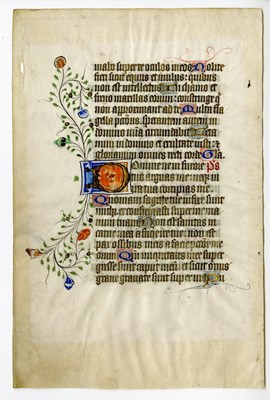 mabo super te oculos meos Nolite
fieri sicut equus et mulus: quibus
non est intellectus In chamo et
freno maxillas eorum: constringe q̄
non approximant ad te Multa fla
gella pctōris. sperantem autem in
domino mīa circumdabit Leta
mini in domino et exultate iusti: et
gloriamini omnes recti corde Gl̄a. p̄s
Domine ne in furore
tuo arguas me neque in
ira tua corripias me
Quoniam sagitte tue infixe sunt
michi: et confirmasti super me ma
num tuam Non est sanitas in
carne mea a facie ire tue: non est
pax ossibus meis a facie
Qm̄ iniquitates mee super
gresse sunt caput meū: et sicut onus
graue grauate sunt super me